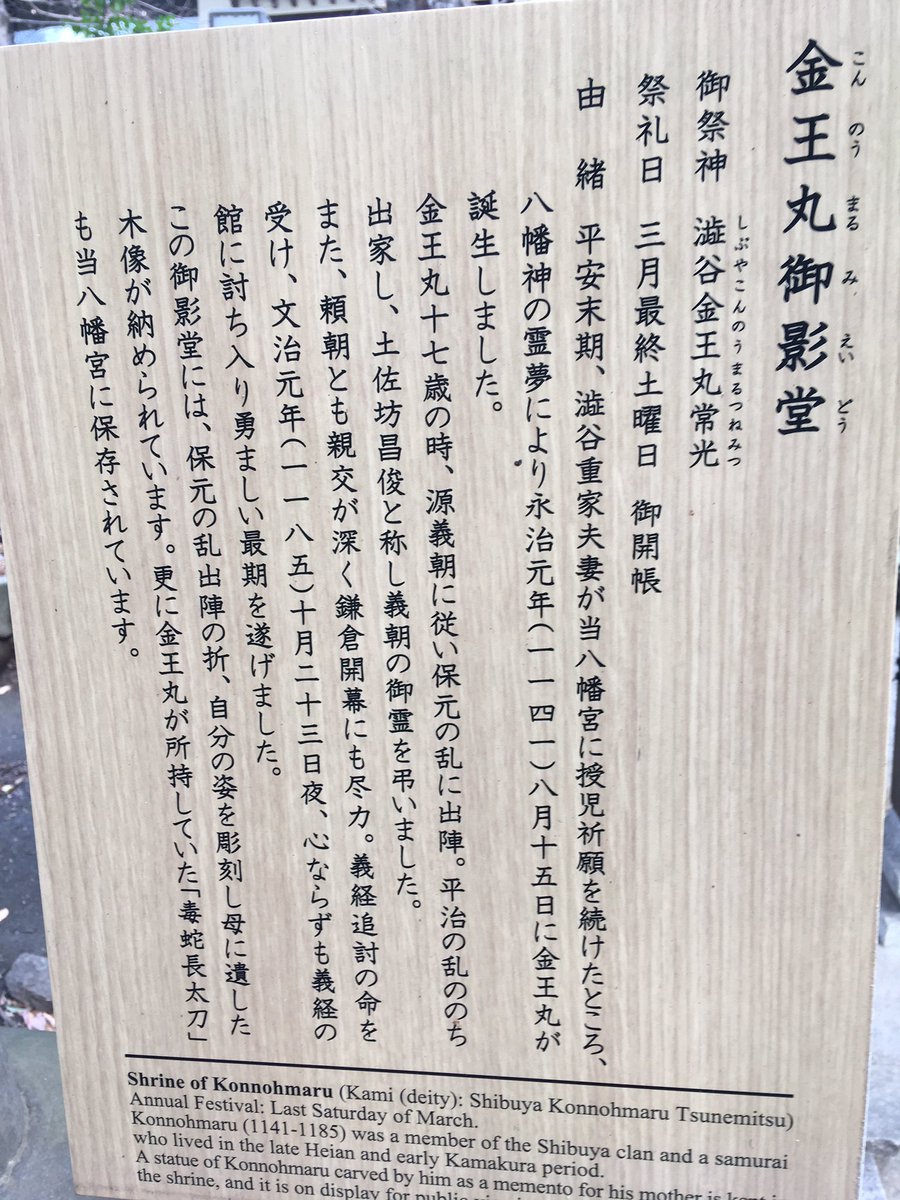 金王丸御影堂
こんのうまるみえいどう
御祭神 澁谷金王丸常光
しぶやこんのうまるつねみつ
祭礼日 三月最終土曜日 御開帳
由緒 平安末期、澁谷重家夫妻が当八幡宮に授児祈願を続けたところ、
八幡神の霊夢により永治元年(一一四一)八月十五日に金王丸が
誕生しました。
金王丸十七歳の時、源義朝に従い保元の乱に出陣。平治の乱ののち
出家し、土佐坊昌俊と称し義朝の御霊を弔いました。
また、頼朝とも親交が深く鎌倉開幕にも尽力。義経追討の命を
受け、文治元年(一一八五)十月二十三日夜、心ならずも義経の
館に討ち入り勇ましい最期を遂げました。
この御影堂には、保元の乱出陣の折、自分の姿を彫刻し母に遺した
木像が納められています。更に金王丸が所持していた「毒蛇長太刀」
も当八幡宮に保存されています。
Shrine of Konnohmaru (Kami (deity): Shibuya Konnohmaru Tsunemitsu)
Annual Festival: Last Saturday of March.
Konnohmaru (1141-1185) was a member of the Shibuya clan and a samurai
who lived in the late Heian and early Kamakura period.
A statue of Konnohmaru carved by him as a memento for his mother is kept in
the shrine, and it is on display for public